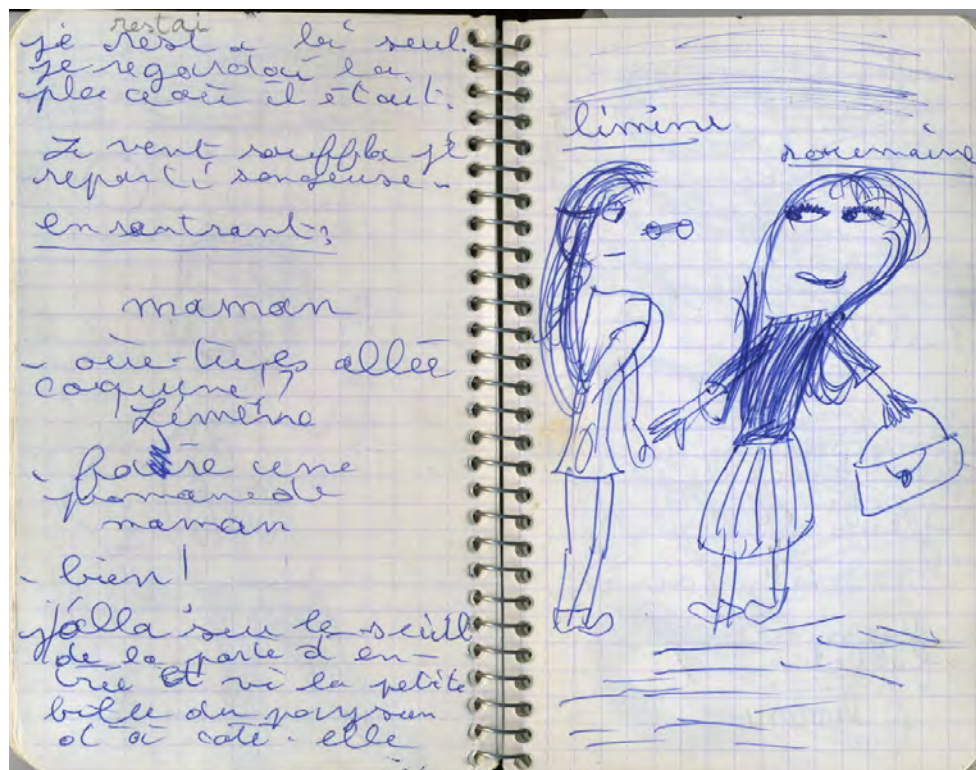 restai
je resta là seul.
je regardai la
place où il était.
Le vent souffla je
reparti songeuse -
en rentrant,
maman
- où tu es allée
coquine ?
Liméine
- faire une
promanede
maman
- bien !
j'alla sur le seuil
de la porte d'en-
trée et vi la petite
du paysan
d'a coté. elle
limine